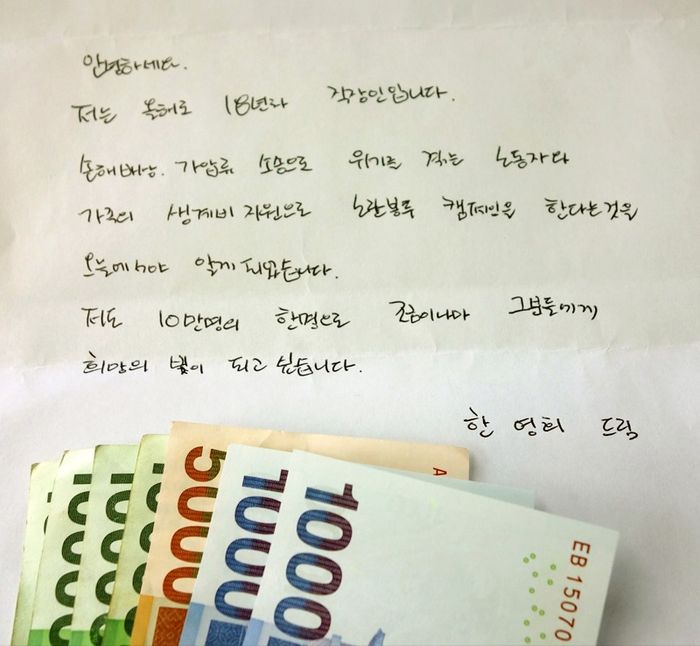 안녕하세요.
저는 올해로 18년차 직장인입니다.
손해배상. 가압류 소송으로 위기를 겪는 노동자와
가족의 생계비 지원으로 노란봉투 캠페인을 한다는것을
오늘에서야 알게 되었습니다.
저도 10만명의 한명으로 조금이나마 그분들에게
희망의 빛이 되고 싶습니다.
한 영희 드림
5000
1000
1000
EB 15070